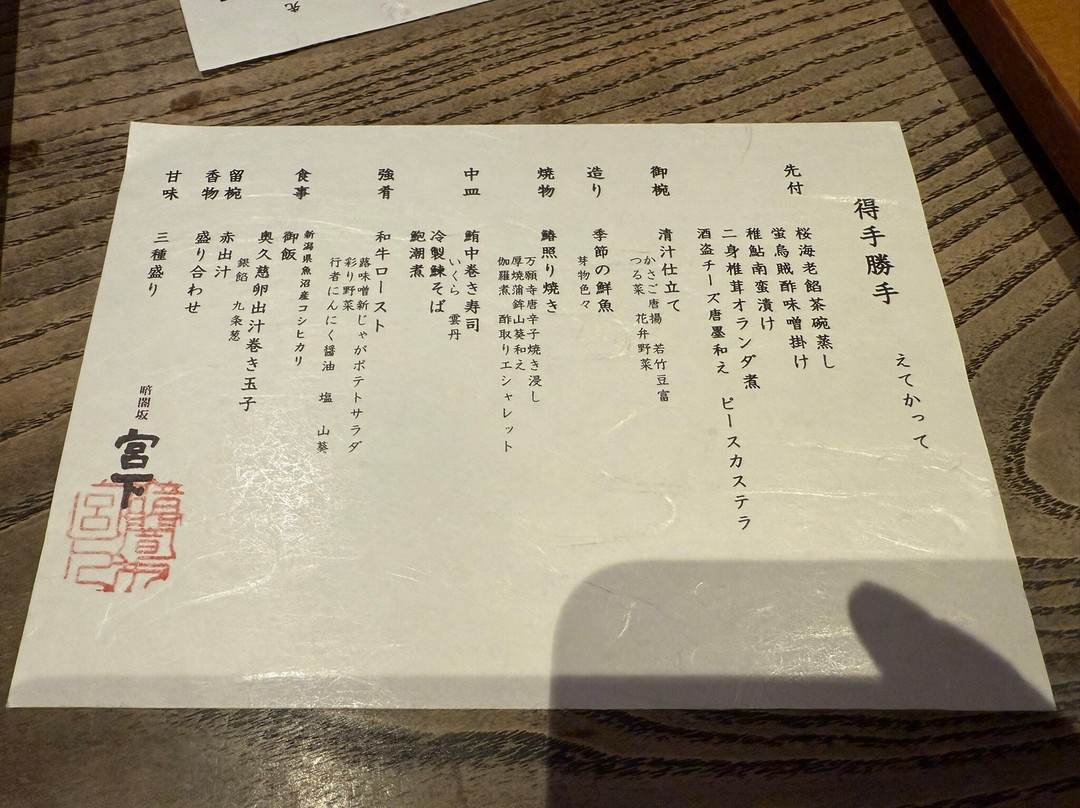 得手勝手
えてかって
先付
桜海老餡茶碗蒸し
蛍烏賊酢味噌掛け
稚鮎南蛮漬け
二身椎茸オランダ煮 ピースカステラ
酒盗チーズ唐墨和え
御椀
清汁仕立て
かさご唐揚 若竹豆富
つる菜 花弁野菜
造り
季節の鮮魚
芽物色々
焼物
鰆照り焼き
万願寺唐辛子焼き浸し
厚焼蒲鉾山葵和え
伽羅煮 酢取りエシャレット
中皿
鮪中巻き寿司
いくら 雲丹
冷製鰊そば
鮑潮煮
強肴
和牛ロースト
蕗味噌新じゃがポテトサラダ
彩り野菜
行者にんにく醤油 塩 山葵
食事
新潟県魚沼産コシヒカリ
御飯
奥久慈卵出汁巻き玉子
銀餡 九条葱
留椀
赤出汁
香物
盛り合わせ
甘味
三種盛り
暗闇坂
宮下
先